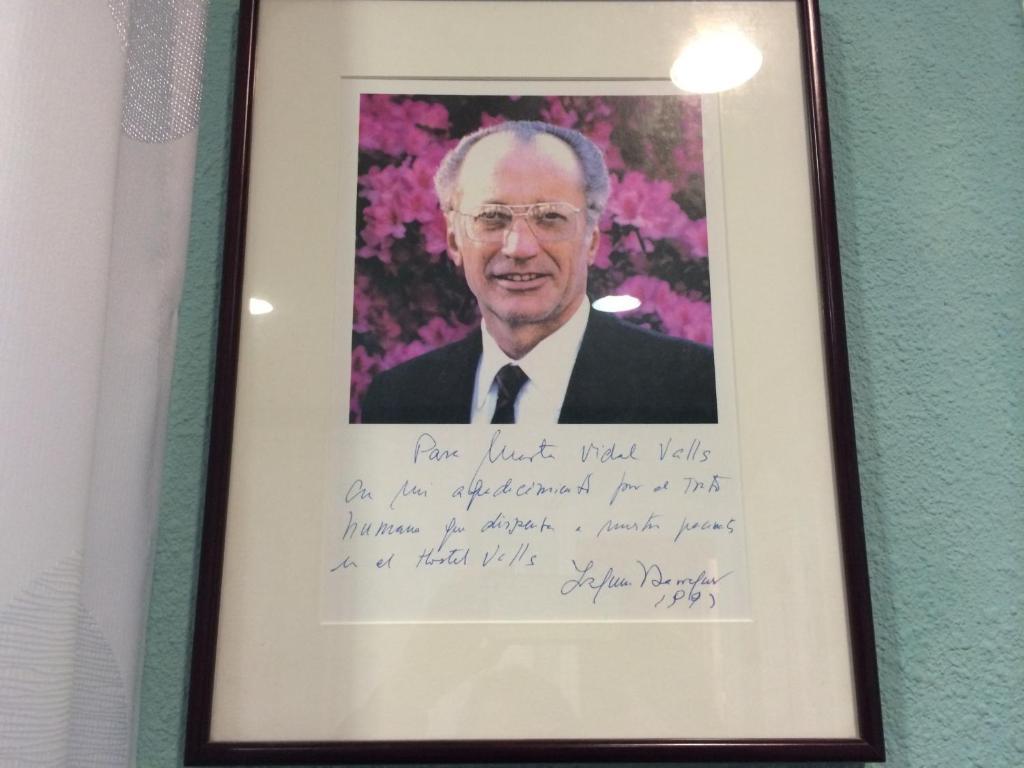 Para Marta Vidal Valls
con mi agradecimiento por el trato
humano que dispensa a nuestros pacientes
en el Hostal Valls
1993